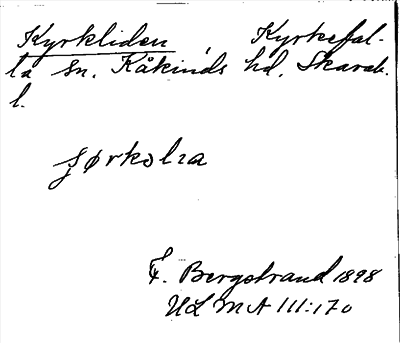 Kyrkliden, Kyrkefal-
la sn. Kåkinds hd. Skarab.
l.
F. Bergstrand 1898
ULMA 111:170